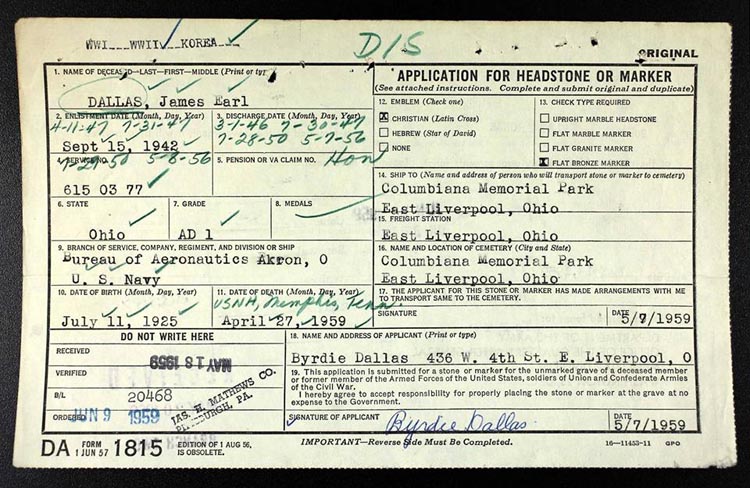 WWI WWII KOREA
D/S
ORIGINAL
1. NAME OF DECEASED—LAST—FIRST—MIDDLE (Print or type)
DALLAS, James Earl
2. ENLISTMENT DATE (Month, Day, Year)
4-11-47 7-31-47
Sept 15, 1942
7-29-50 5-8-56
3. DISCHARGE DATE (Month, Day, Year)
3-1-46 7-30-47
7-28-50 5-7-56
Hon
4. SERVICE NO.
615 03 77
5. PENSION OR VA CLAIM NO.
6. STATE
Ohio
7. GRADE
AD 1
8. MEDALS
9. BRANCH OF SERVICE, COMPANY, REGIMENT, AND DIVISION OR SHIP
Bureau of Aeronautics Akron, O
U. S. Navy
10. DATE OF BIRTH (Month, Day, Year)
July 11, 1925
11. DATE OF DEATH (Month, Day, Year)
USNH, Memphis, Tenn
April 27, 1959
APPLICATION FOR HEADSTONE OR MARKER
(See attached instructions. Complete and submit original and duplicate)
12. EMBLEM (Check one)
X CHRISTIAN (Latin Cross)
HEBREW (Star of David)
NONE
13. CHECK TYPE REQUIRED
UPRIGHT MARBLE HEADSTONE
FLAT MARBLE MARKER
FLAT GRANITE MARKER
X FLAT BRONZE MARKER
14. SHIP TO (Name and address of person who will transport stone or marker to cemetery)
Columbiana Memorial Park
East Liverpool, Ohio
15. FREIGHT STATION
East Liverpool, Ohio
16. NAME AND LOCATION OF CEMETERY (City and State)
Columbiana Memorial Park
East Liverpool, Ohio
17. THE APPLICANT FOR THIS STONE OR MARKER HAS MADE ARRANGEMENTS WITH ME
TO TRANSPORT SAME TO THE CEMETERY.
SIGNATURE
DATE
5/7/1959
DO NOT WRITE HERE
RECEIVED
MAY 18 1959
VERIFIED
B/L
20468
JAS. H. MATHEWS CO.
PITTSBURGH, PA.
ORDERED
JUN 9 1959
18. NAME AND ADDRESS OF APPLICANT (Print or type)
Byrdie Dallas 436 W. 4th St. E. Liverpool, O
19. This application is submitted for a stone or marker for the unmarked grave of a deceased member
or former member of the Armed Forces of the United States, soldiers of Union and Confederate Armies
of the Civil War.
I hereby agree to accept responsibility for properly placing the stone or marker at the grave at no
expense to the Government.
SIGNATURE OF APPLICANT
Byrdie Dallas
DATE
5/7/1959
DA FORM 1 JUN 57 1815
EDITION OF 1 AUG 56,
IS OBSOLETE.
IMPORTANT—Reverse Side Must Be Completed.
16—11453-11 GPO